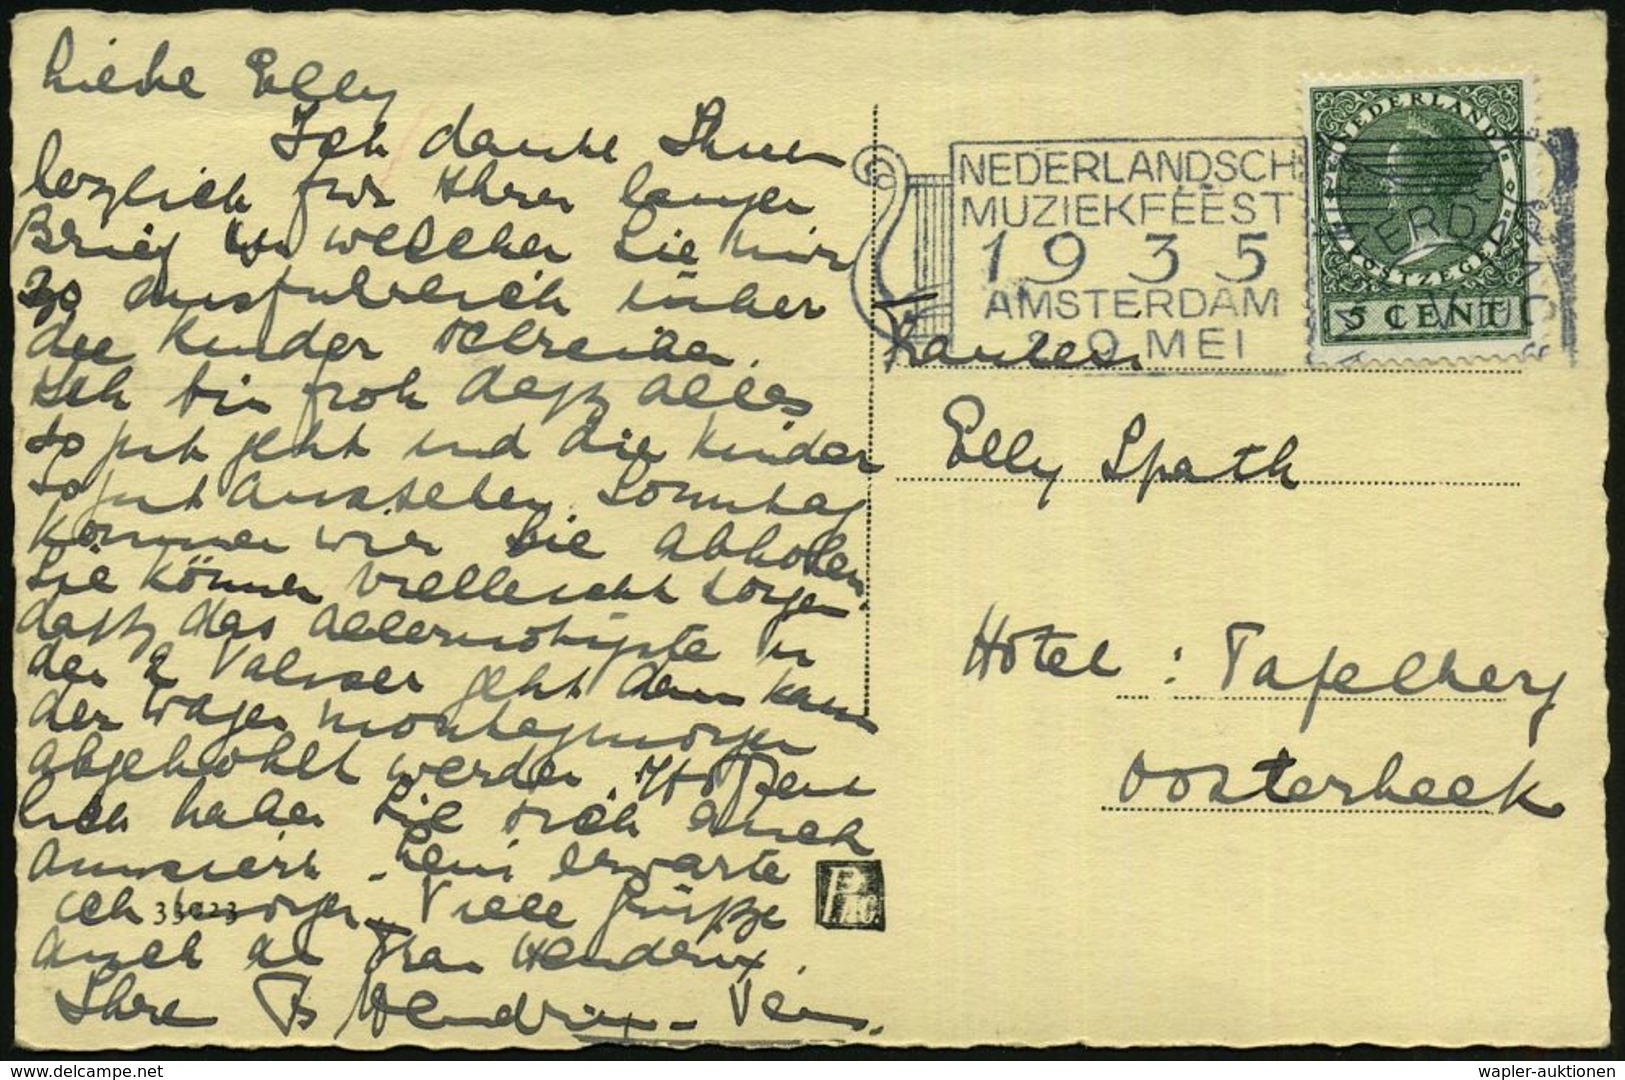 Liebe Elly
Ich danke Ihnen
herzlich für Ihren langen
Brief in welchen Sie mir
so ausfuhrlich über
die Kinder schreiben.
Ich bin froh dasz alles
so gut geht und die Kinder
so gut aussehen. Sonntag
kommen wir Sie abholen.
Sie können vielleicht sorgen
dasz das allernötigste in
den 2 Valiser geht dann kann
der Wagen montagmorgen
abgehohlt werden. Hoffent
lich haben Sie sich auch
amusiert. Leni erwarte
ich morgen. Viele Grüsze
auch an Frau Hendrix.
Ihre Hendrix-
33023
NEDERLANDSCH
MUZIEKFEEST
1935
AMSTERDAM
2 9 MEI
NEDERLAND
POSTZEGEL
5 CENT
Elly Spath
Hotel : Tafelberg
Oosterbeek
wapler-auktionen
delcampe.net
wapler-auktionen